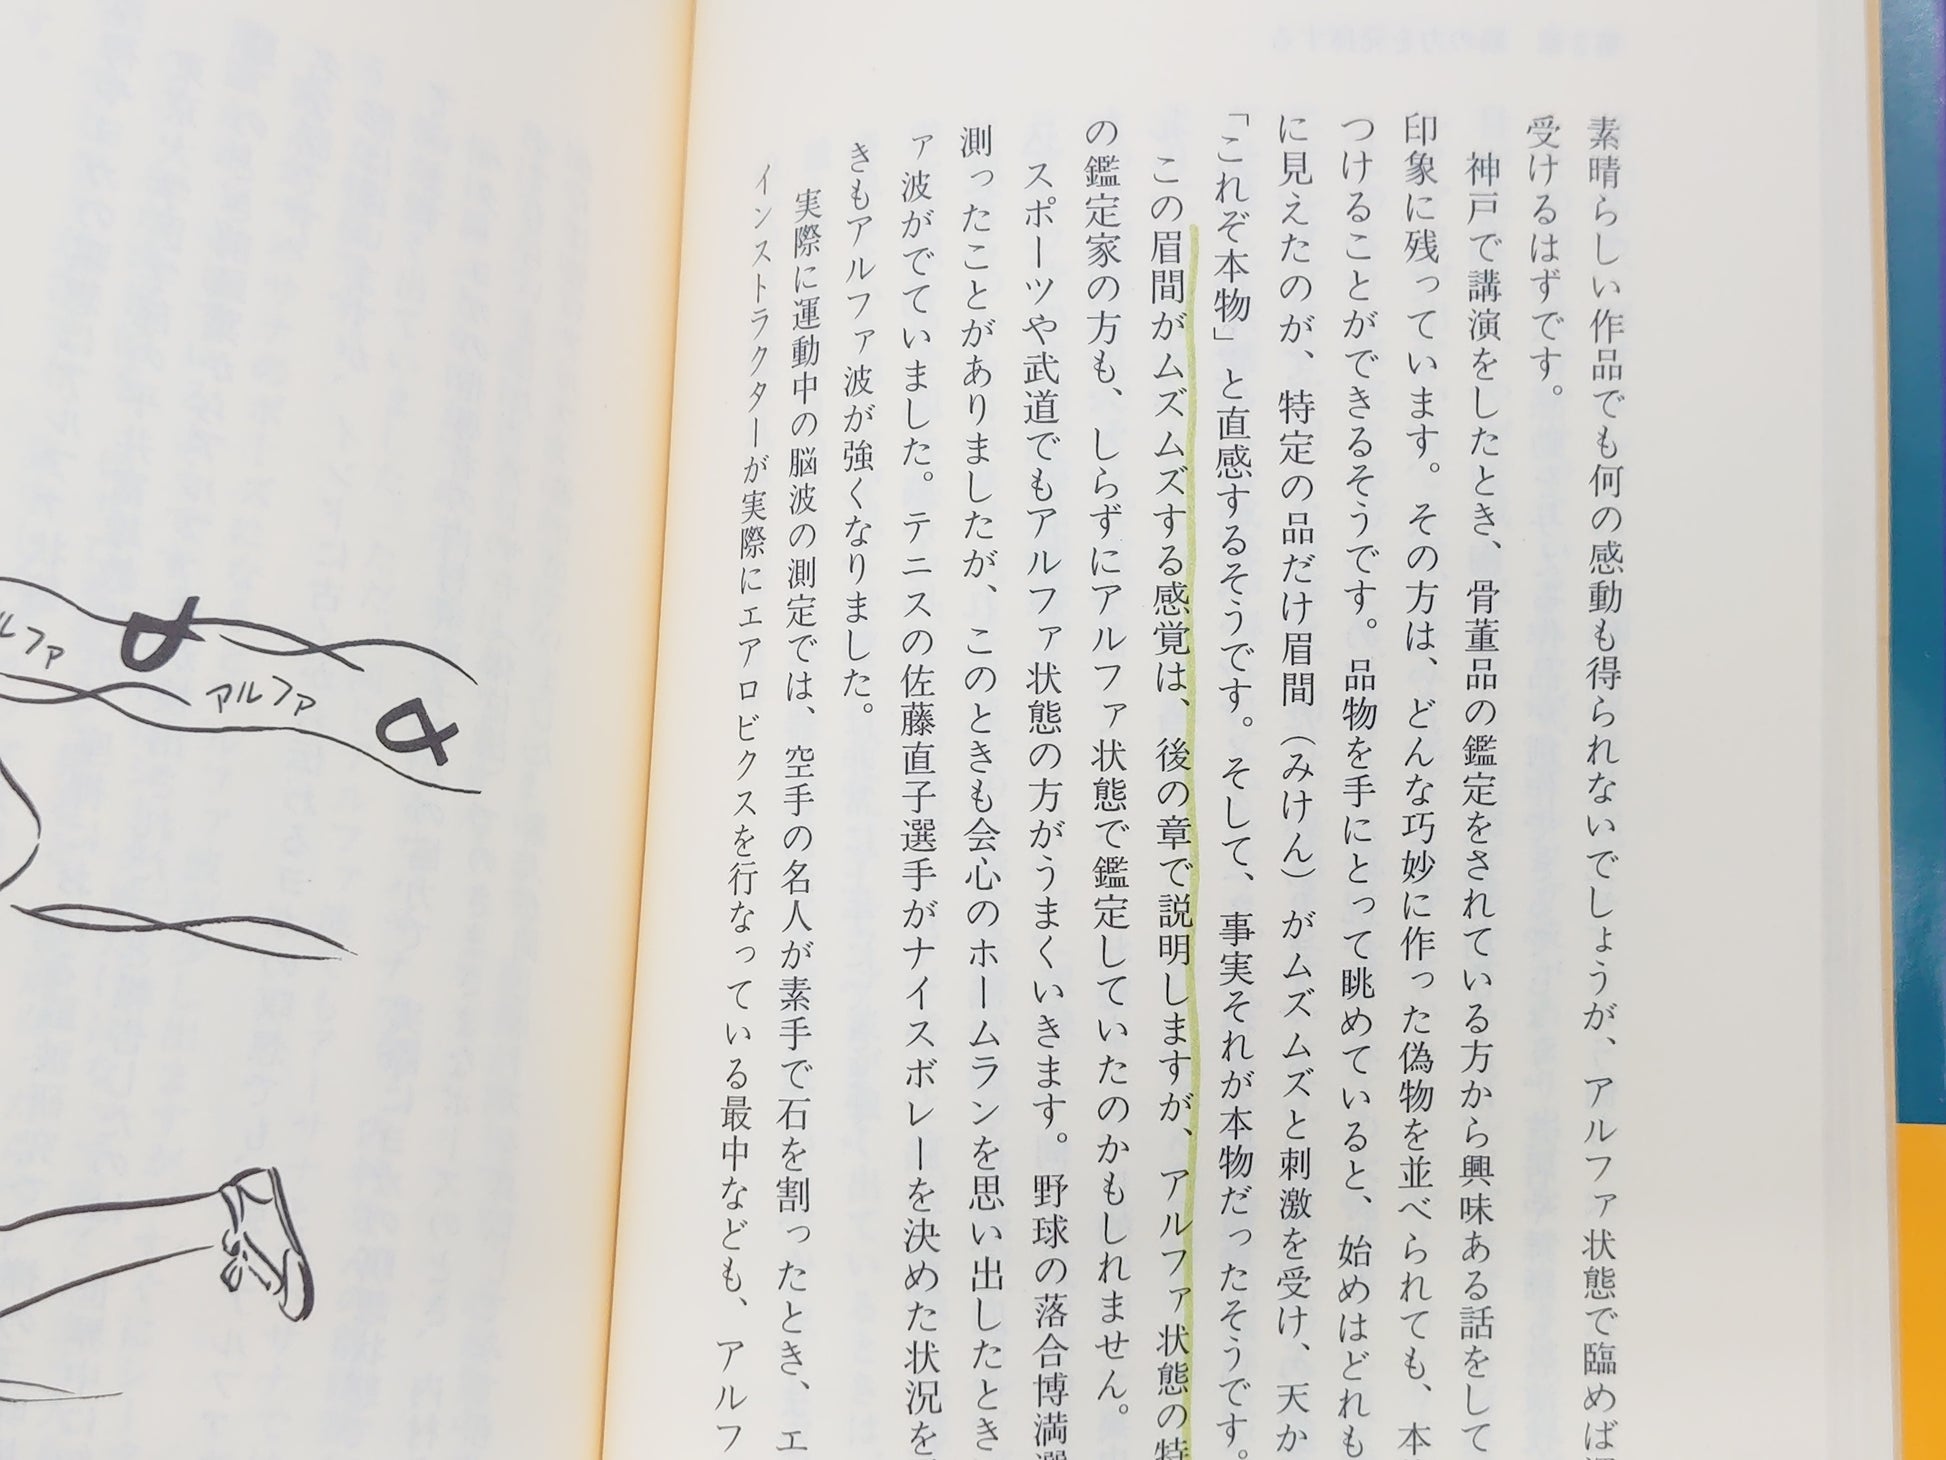 素晴らしい作品でも何の感動も得られないでしょうが、アルファ状態で臨めば
受けるはずです。
神戸で講演をしたとき、骨董品の鑑定をされている方から興味ある話をして
印象に残っています。その方は、どんな巧妙に作った偽物を並べられても、本
つけることができるそうです。品物を手にとって眺めていると、始めはどれも
に見えたのが、特定の品だけ眉間（みけん）がムズムズと刺激を受け、天か
「これぞ本物」と直感するそうです。そして、事実それが本物だったそうです。
この眉間がムズムズする感覚は、後の章で説明しますが、アルファ状態の特
の鑑定家の方も、しらずにアルファ状態で鑑定していたのかもしれません。
スポーツや武道でもアルファ状態の方がうまくいきます。野球の落合博満選
測ったことがありましたが、このときも会心のホームランを思い出したとき
ァ波がでていました。テニスの佐藤直子選手がナイスボレーを決めた状況を
きもアルファ波が強くなりました。
実際に運動中の脳波の測定では、空手の名人が素手で石を割ったとき、エ
インストラクターが実際にエアロビクスを行なっている最中なども、アルフ
アルファ
ルファ